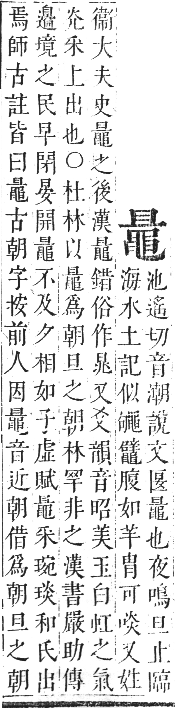 鼂
池遙切音潮說文匽鼂也夜鳴旦止臨
海水土記似鼊腹如羊胃可啖又姓
衞大夫史鼂之後漢鼂錯俗作晁又爻韻音昭美玉白虹之氣
灮采上出也○杜林以鼂爲朝旦之朝林罕非之漢書嚴助傳
邉境之民早閉晏開鼂不及夕相如子虛賦鼂采琬琰和氏出
焉師古註皆曰鼂古朝字按前人因鼂音近朝借爲朝旦之朝